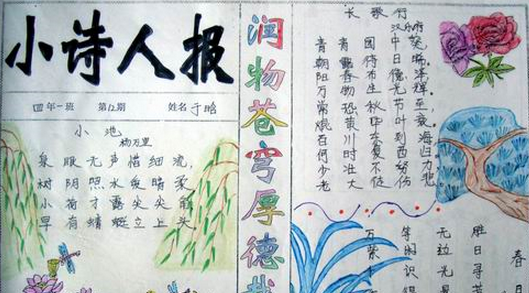 小诗人报
四年一班 第12期 姓名 于晗
小池
杨万里
泉眼无声惜细流,
树阴照水爱晴柔
小荷才露尖尖
早有蜻蜓立上头
润物苍穹厚德载
长歌行
汉乐府
青青园中葵
朝露待日晞
阳春布德泽
万物生光辉
常恐秋节至
焜黄华叶衰
百川东到海
何时复西归
少壮不努力
老大徒伤悲
春
胜日寻
无边光
等闲识得
万紫